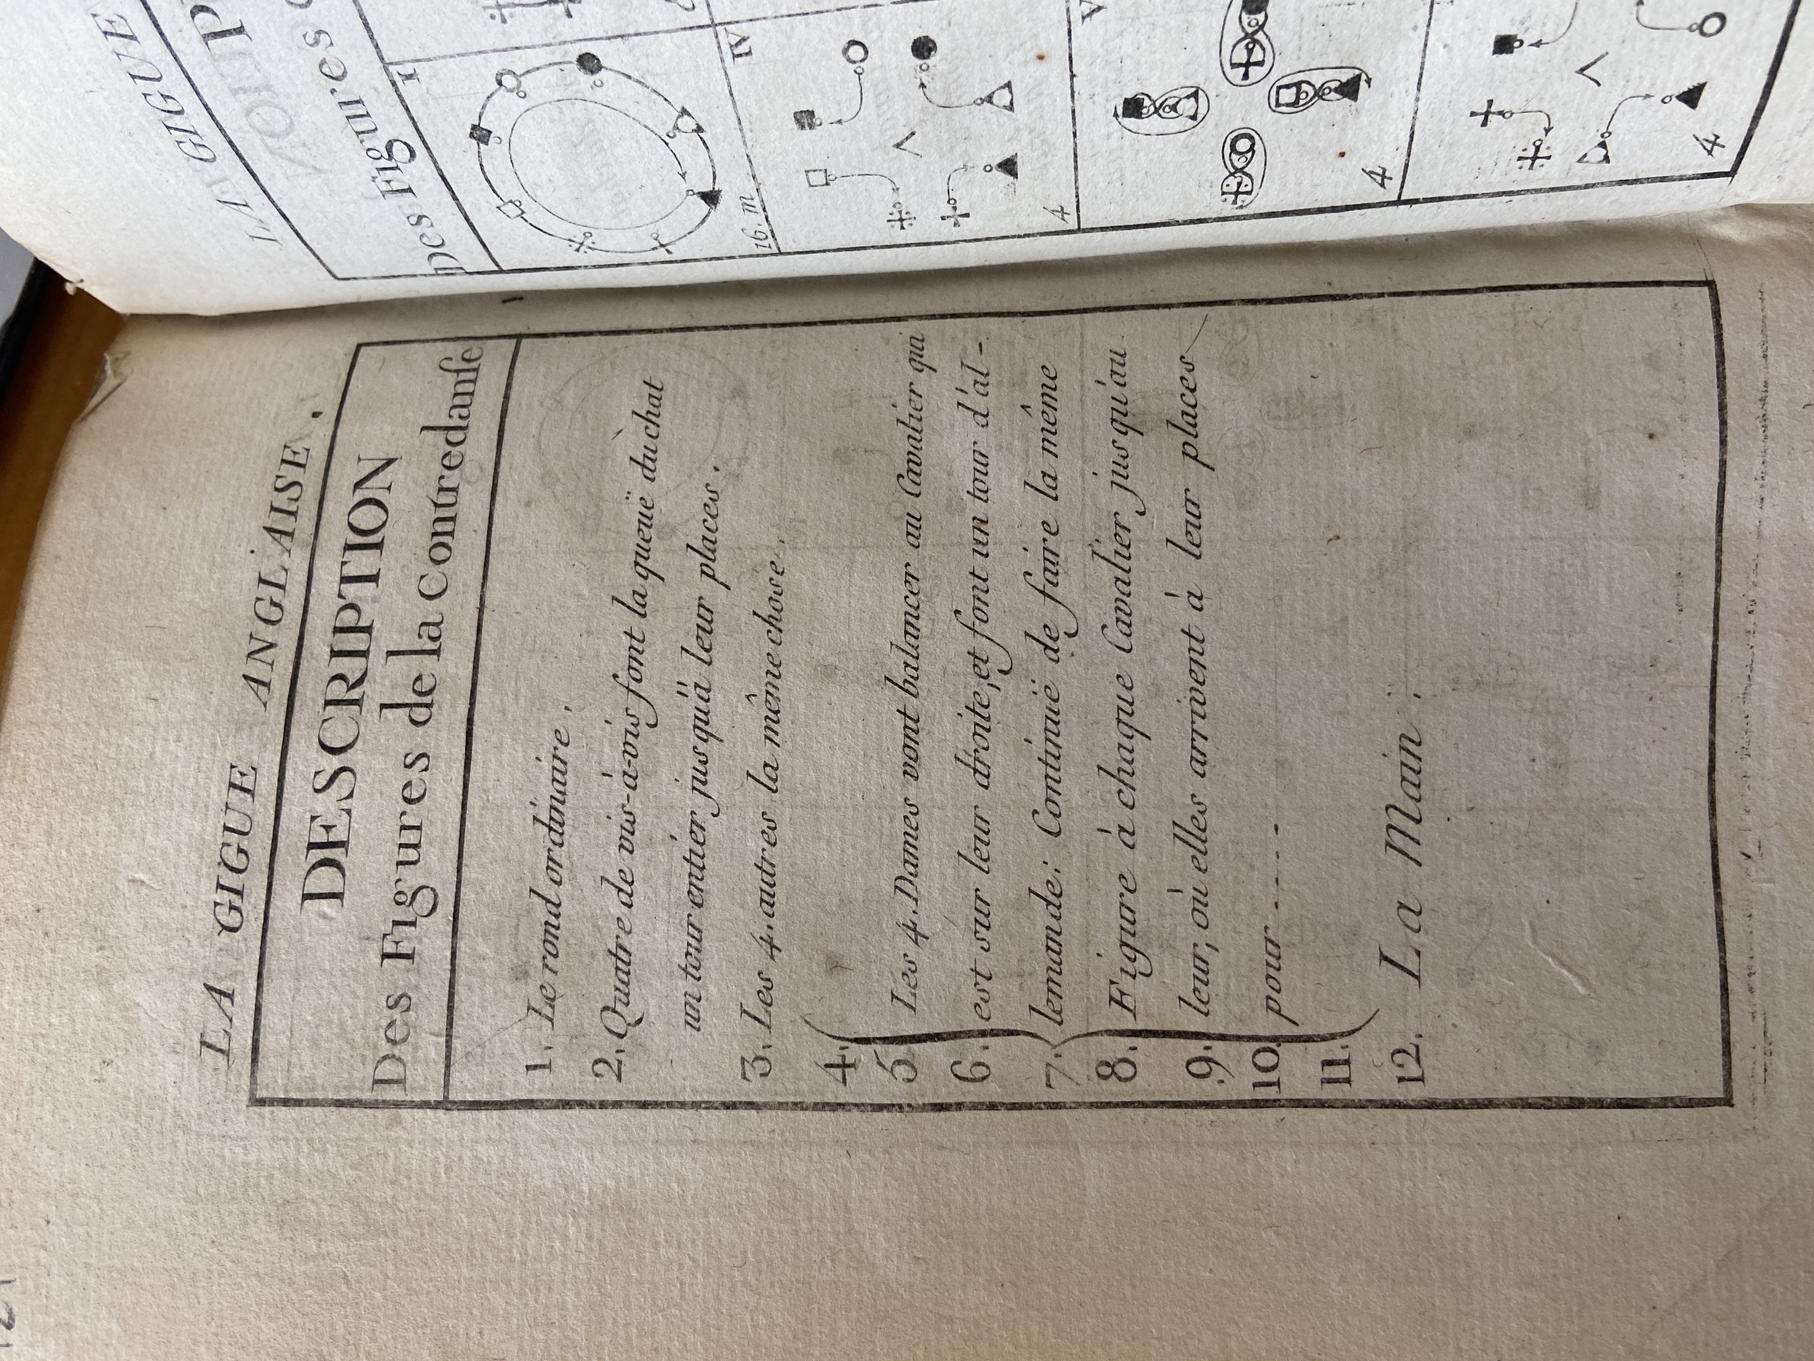 LA GIGUE ANGLAISE.
DESCRIPTION
Des Figures de la Contredanſe
1. Le rond ordinaire.
2. Quatre de vis-à-vis font la queuë du chat
un tour entier jusqu'à leur places.
3. Les 4. autres la même chose.
4.
5. Les 4. Dames vont balancer au Cavalier qui
6. est sur leur droite, et font un tour d'al-
7. lemande: Continuë de faire la même
8. Figure à chaque Cavalier jusqu'au
9. leur, où elles arrivent à leur places
10. pour -----
11.
12. La Main.
LA GIGUE
Des Figures
I
16. m
IV
4
V
4
4